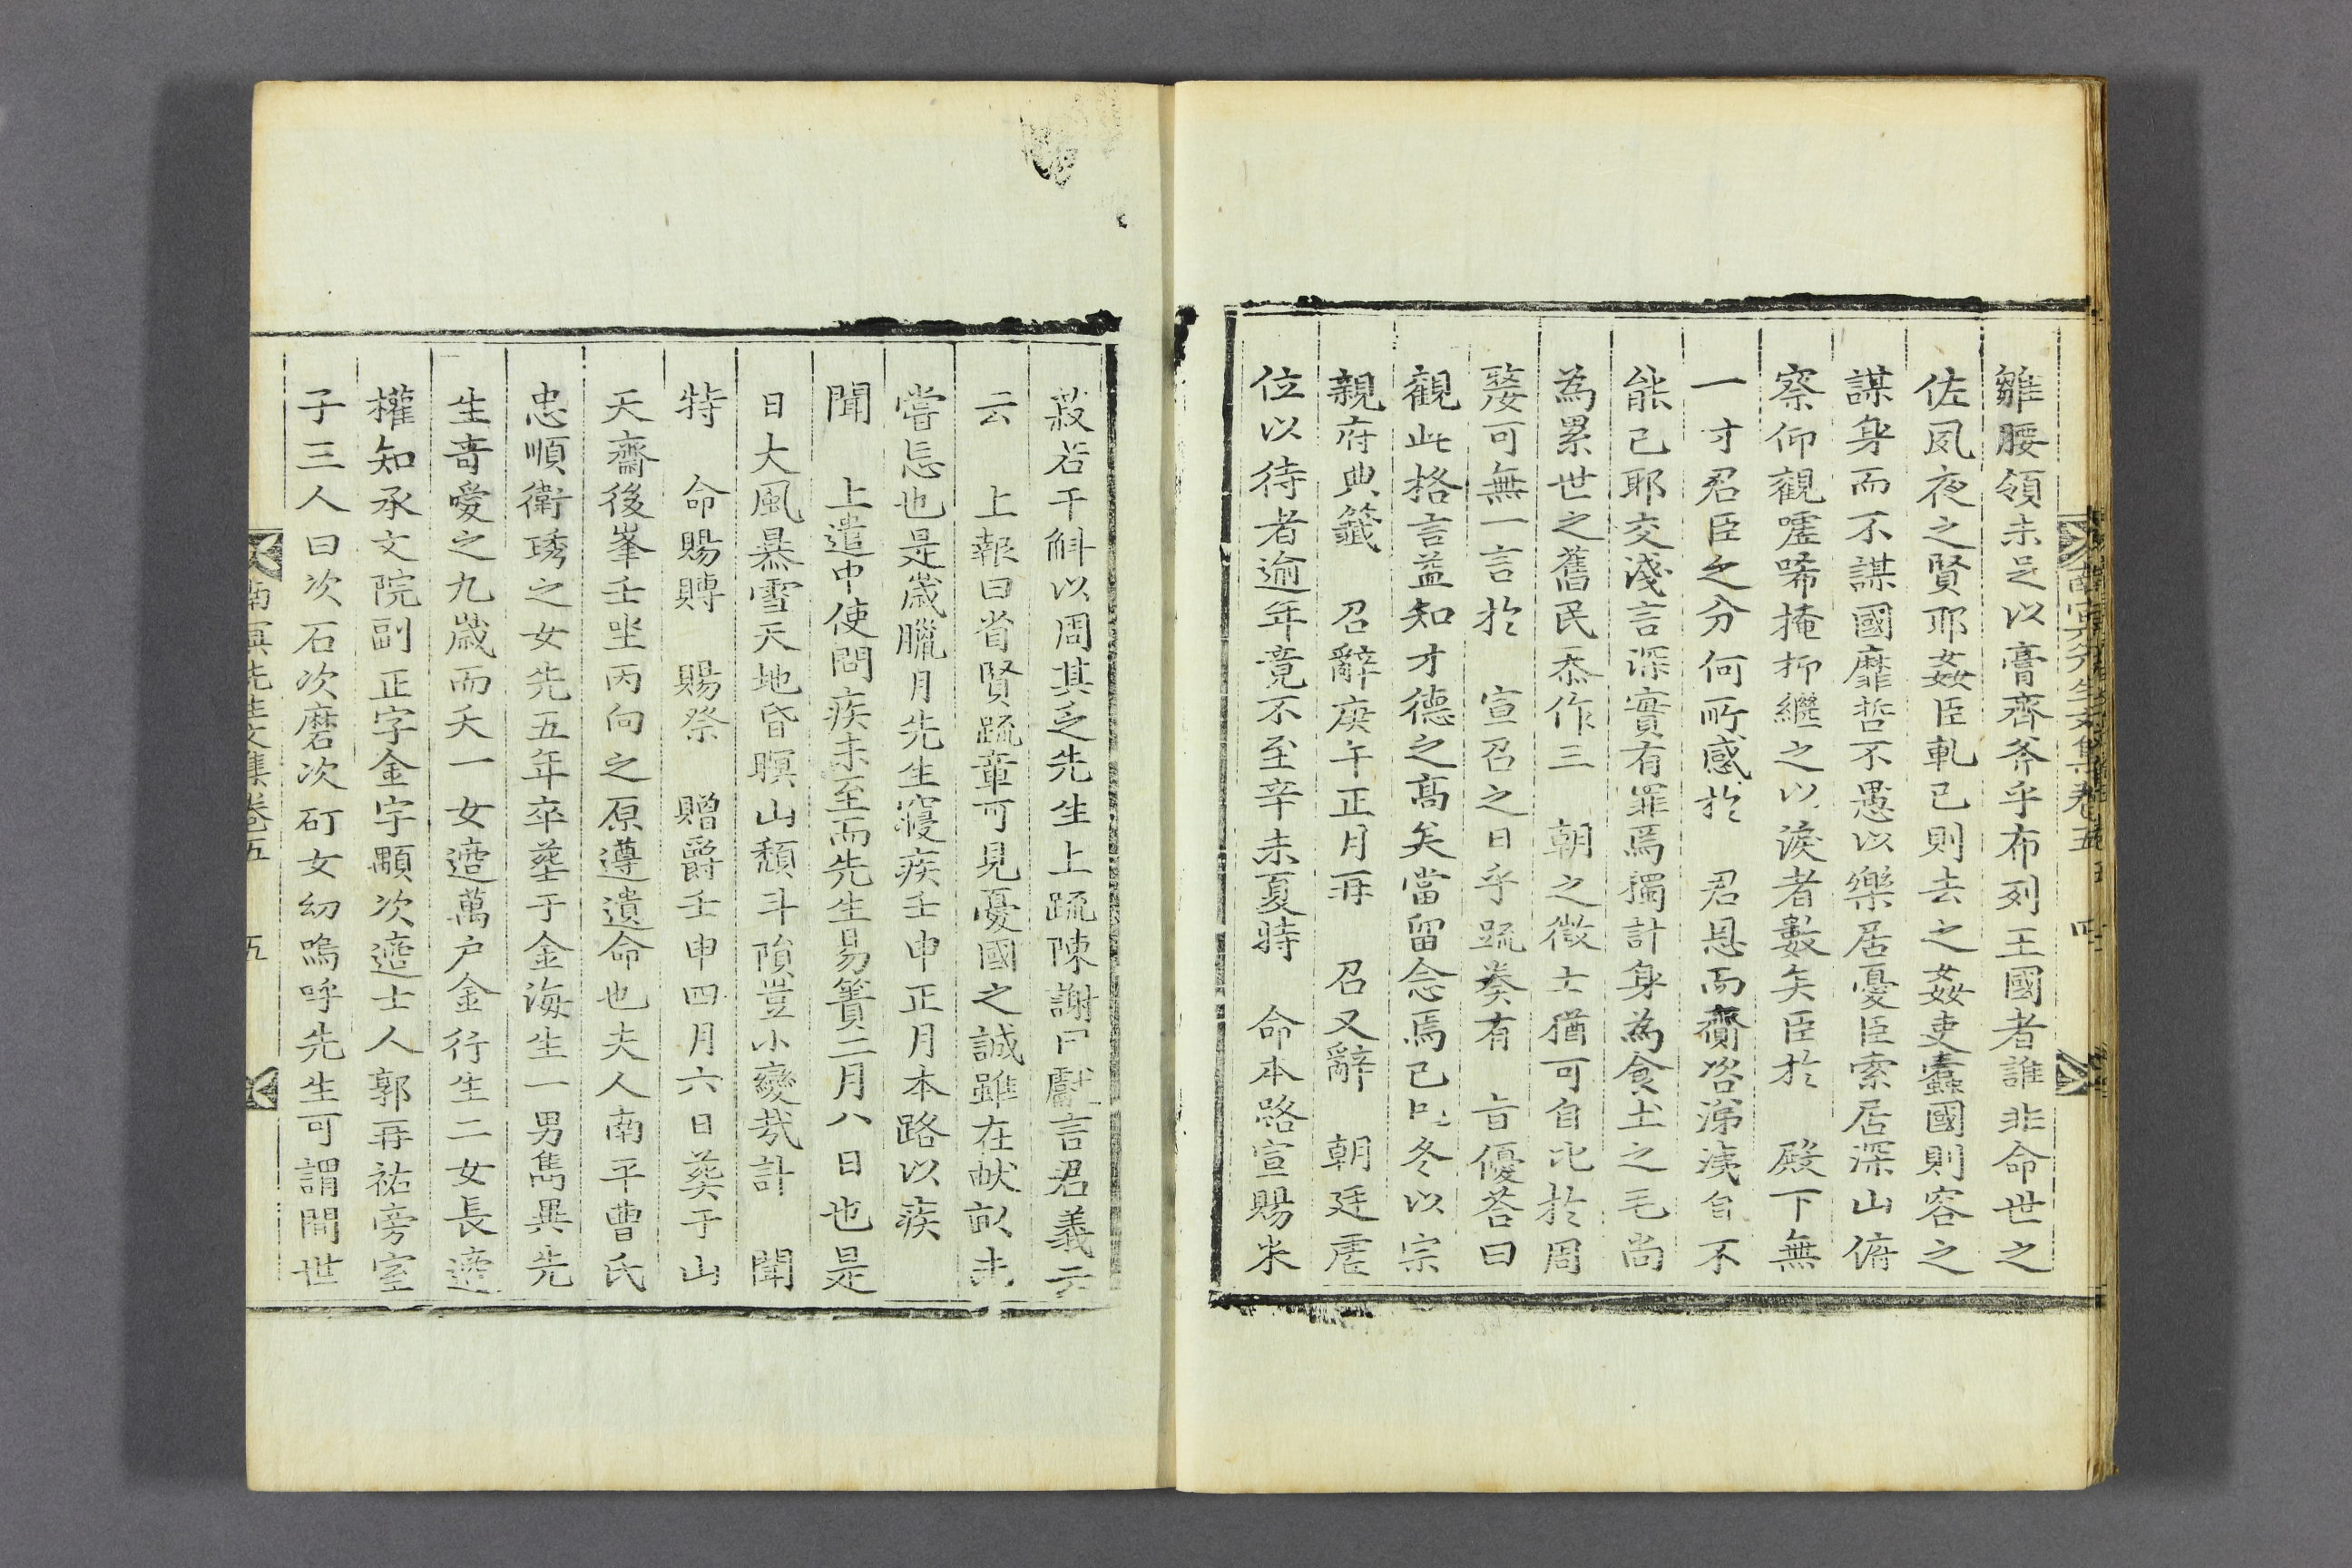 雖腰領未足以膏齊斧乎布列王國者誰非命世之
佐夙夜之賢耶姦臣軋己則去之姦吏蠹國則容之
謀身而不謀國靡哲不愚以樂居憂臣索居深山俯
察仰觀噓唏掩抑繼之以淚者數矣臣於　殿下無
一寸君臣之分何所感於　君恩而齎咨涕洟自不
能已耶交淺言深實有罪焉獨計身為食土之毛尚
為累世之舊民忝作三　朝之徵士猶可自比於周
嫠可無一言於　宣召之日乎疏奏有　旨優答曰
觀此格言益知才德之高矣當留念焉己巳冬以宗
親府典籤　召辭庚午正月再　召又辭　朝廷虛
位以待者逾年竟不至辛未夏特　命本路宣賜米
南冥先生文集卷五　四
菽若干斛以周其乏先生上疏陳謝曰獻言君義云
云　上報曰省賢疏章可見憂國之誠雖在畎畝未
嘗忘也是歲臘月先生寢疾壬申正月本路以疾
聞　上遣中使問疾未至而先生易簀二月八日也是
日大風暴雪天地昏暝山頹斗隕豈小變哉訃　聞
特　命賜賻　賜祭　贈爵壬申四月六日葬于山
天齋後峯壬坐丙向之原遵遺命也夫人南平曹氏
忠順衛琇之女先五年卒葬于金海生一男雋異先
生奇愛之九歲而夭一女適萬戶金行生二女長適
權知承文院副正字金宇顒次適士人郭再祐旁室
子三人曰次石次磨次矴女幼嗚呼先生可謂間世
南冥先生文集卷五　五